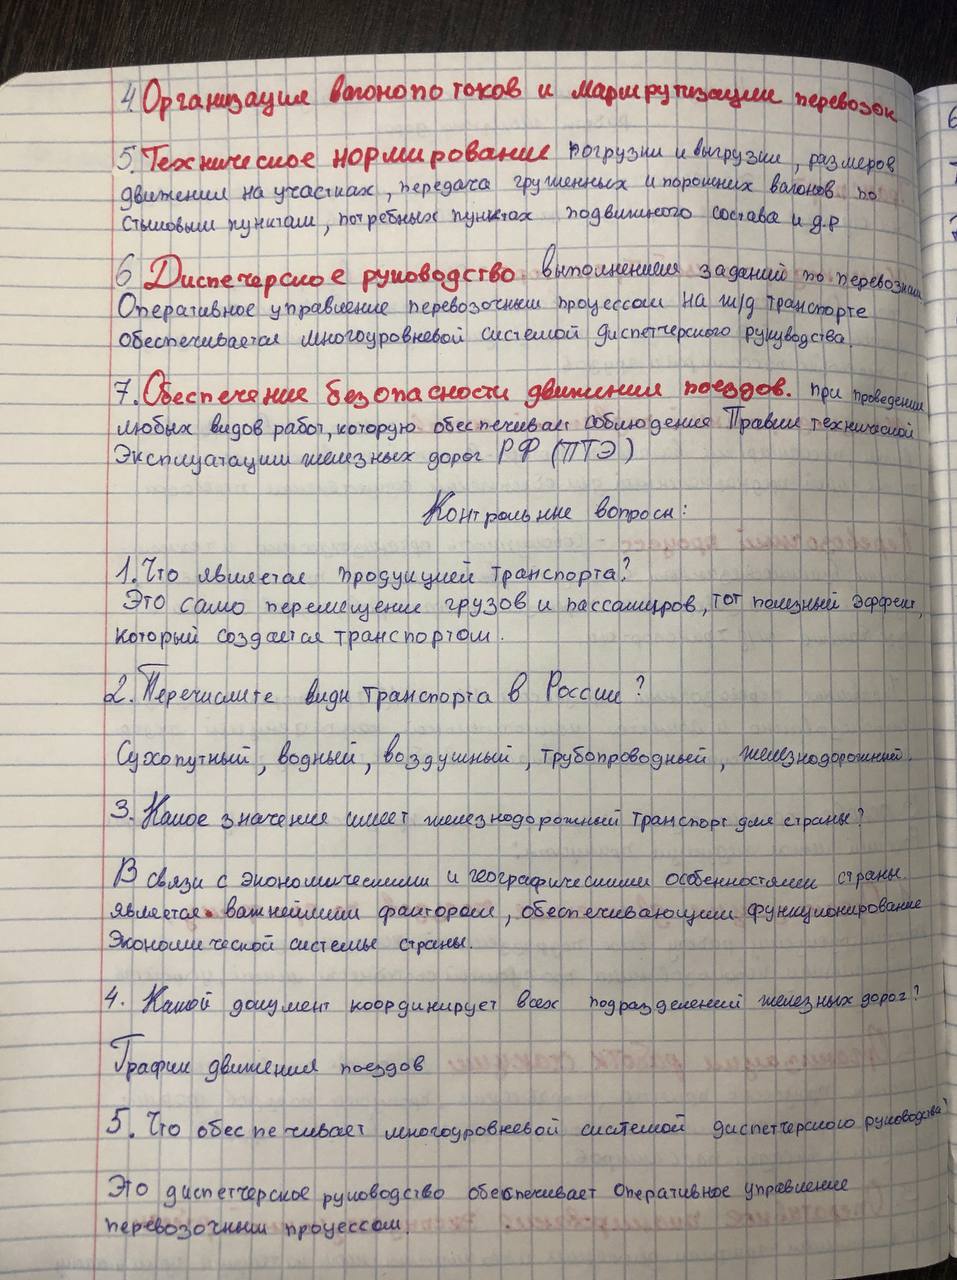 4. Организация вагонопотоков и маршрутизации перевозок
5. Техническое нормирование погрузки и выгрузки, размеров
движения на участках, передача груженных и порожних вагонов по
стыковым пунктам, потребных пунктах подвижного состава и д.р
6 Диспечерское руководство выполнением заданий по перевозкам
Оперативное управление перевозочным процессом на ж/д транспорте
обеспечивается многоуровневой системой диспетчерского рукуводства.
7. Обеспечение безопасности движения поездов. при проведении
любых видов работ, которую обеспечивает соблюдения Правил технической
Эксплуатации железных дорог РФ (ПТЭ)
Контрольные вопросы:
1. Что является продукцией транспорта?
Это само перемещение грузов и пассажиров, тот полезный эффект,
который создается транспортом.
2. Перечислите виды транспорта в России?
Сухопутный, водный, воздушный, трубопроводный, железнодорожный.
3. Какое значения имеет железнодорожный транспорт для страны?
В связи с экономическими и географическими особенностями страны
является важнейшим фактором, обеспечивающим функционирование
Экономической системы страны.
4. Какой документ координирует всех подразделений железных дорог?
График движения поездов
5. Что обеспечивает многоуровневой системой диспетчерского руководства?
Это диспетчерское руководство обеспечивает оперативное управление
перевозочным процессом.